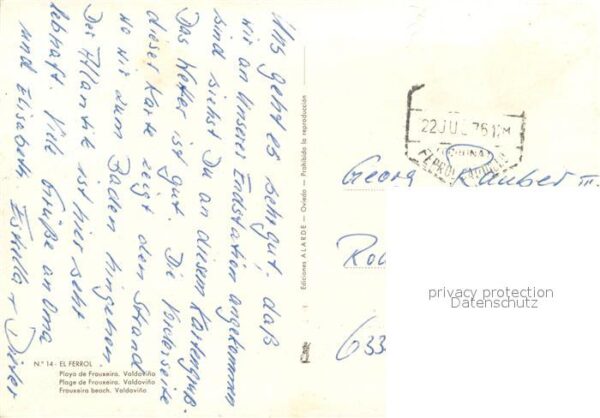 Uns geht es sehr gut, daß
wir an unserer Endstation angekommen
sind siehst Du an diesem Kartengruß.
Das Wetter ist gut. Die Vorderseite
dieser Karte zeigt den Strand
wo wir zum Baden hingehen.
Der Atlantik ist hier sehr
lebhaft. Viele Grüße an Oma
und Elisabeth Estrella + Dieter
Nº 14 - EL FERROL
Playa de Frouxeira. Valdoviño
Plage de Frouxeira. Valdoviño
Frouxeira beach. Valdoviño
Ediciones ALARDE - Oviedo - Prohibida la reproducción
22 JUL 76
FERROL
Georg Rauber III.
633
privacy protection
Datenschutz